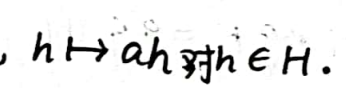 , h ↦ ah 对 h ∈ H.